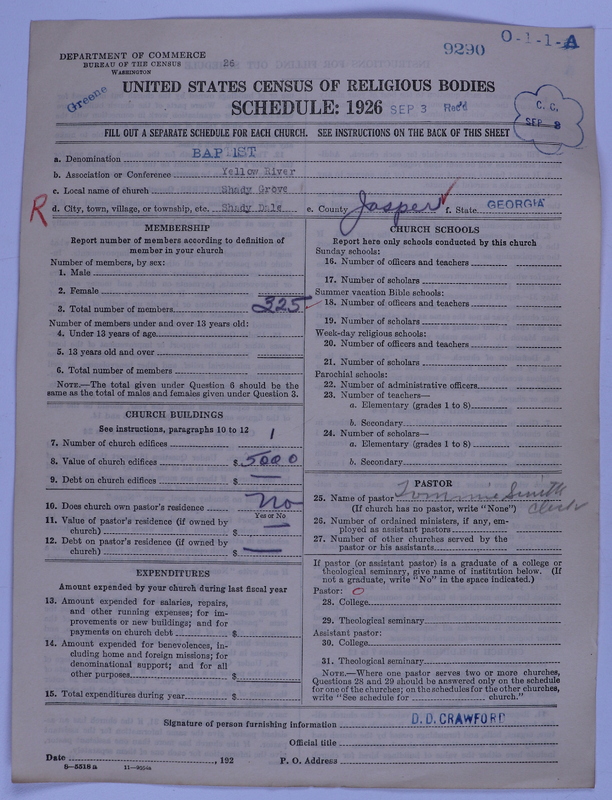 9290
O-1-1-A
DEPARTMENT OF COMMERCE
BUREAU OF THE CENSUS
WASHINGTON
26
Greene
UNITED STATES CENSUS OF RELIGIOUS BODIES
SCHEDULE: 1926
SEP 3 Rec'd
C. C.
SEP 3
FILL OUT A SEPARATE SCHEDULE FOR EACH CHURCH. SEE INSTRUCTIONS ON THE BACK OF THIS SHEET
a. Denomination BAPTIST
b. Association or Conference Yellow River
c. Local name of church Shady Grove
R
d. City, town, village, or township, etc. Shady Dale e. County Jasper f. State GEORGIA
MEMBERSHIP
Report number of members according to definition of
member in your church
Number of members, by sex:
1. Male
2. Female
3. Total number of members 325
Number of members under and over 13 years old:
4. Under 13 years of age
5. 13 years old and over
6. Total number of members
NOTE.—The total given under Question 6 should be the
same as the total of males and females given under Question 3.
CHURCH BUILDINGS
See instructions, paragraphs 10 to 12
7. Number of church edifices 1
8. Value of church edifices $ 5000
9. Debt on church edifices $ —
10. Does church own pastor's residence No
Yes or No
11. Value of pastor's residence (if owned by
church) $ —
12. Debt on pastor's residence (if owned by
church) $ —
EXPENDITURES
Amount expended by your church during last fiscal year
13. Amount expended for salaries, repairs,
and other running expenses; for im-
provements or new buildings; and for
payments on church debt $
14. Amount expended for benevolences, in-
cluding home and foreign missions; for
denominational support; and for all
other purposes $
15. Total expenditures during year $
CHURCH SCHOOLS
Report here only schools conducted by this church
Sunday schools:
16. Number of officers and teachers
17. Number of scholars
Summer vacation Bible schools:
18. Number of officers and teachers
19. Number of scholars
Week-day religious schools:
20. Number of officers and teachers
21. Number of scholars
Parochial schools:
22. Number of administrative officers
23. Number of teachers—
a. Elementary (grades 1 to 8)
b. Secondary
24. Number of scholars—
a. Elementary (grades 1 to 8)
b. Secondary
PASTOR
25. Name of pastor Tommie Smith
(If church has no pastor, write "None") Clerk
26. Number of ordained ministers, if any, em-
ployed as assistant pastors
27. Number of other churches served by the
pastor or his assistants
If pastor (or assistant pastor) is a graduate of a college or
theological seminary, give name of institution below. (If
not a graduate, write "No" in the space indicated.)
Pastor: O
28. College
29. Theological seminary
Assistant pastor:
30. College
31. Theological seminary
NOTE.—Where one pastor serves two or more churches,
Questions 28 and 29 should be answered only on the schedule
for one of the churches; on the schedules for the other churches,
write "See schedule for church."
Signature of person furnishing information D. D. CRAWFORD
Official title
Date , 192 P. O. Address
8—5518 a 11—9554a